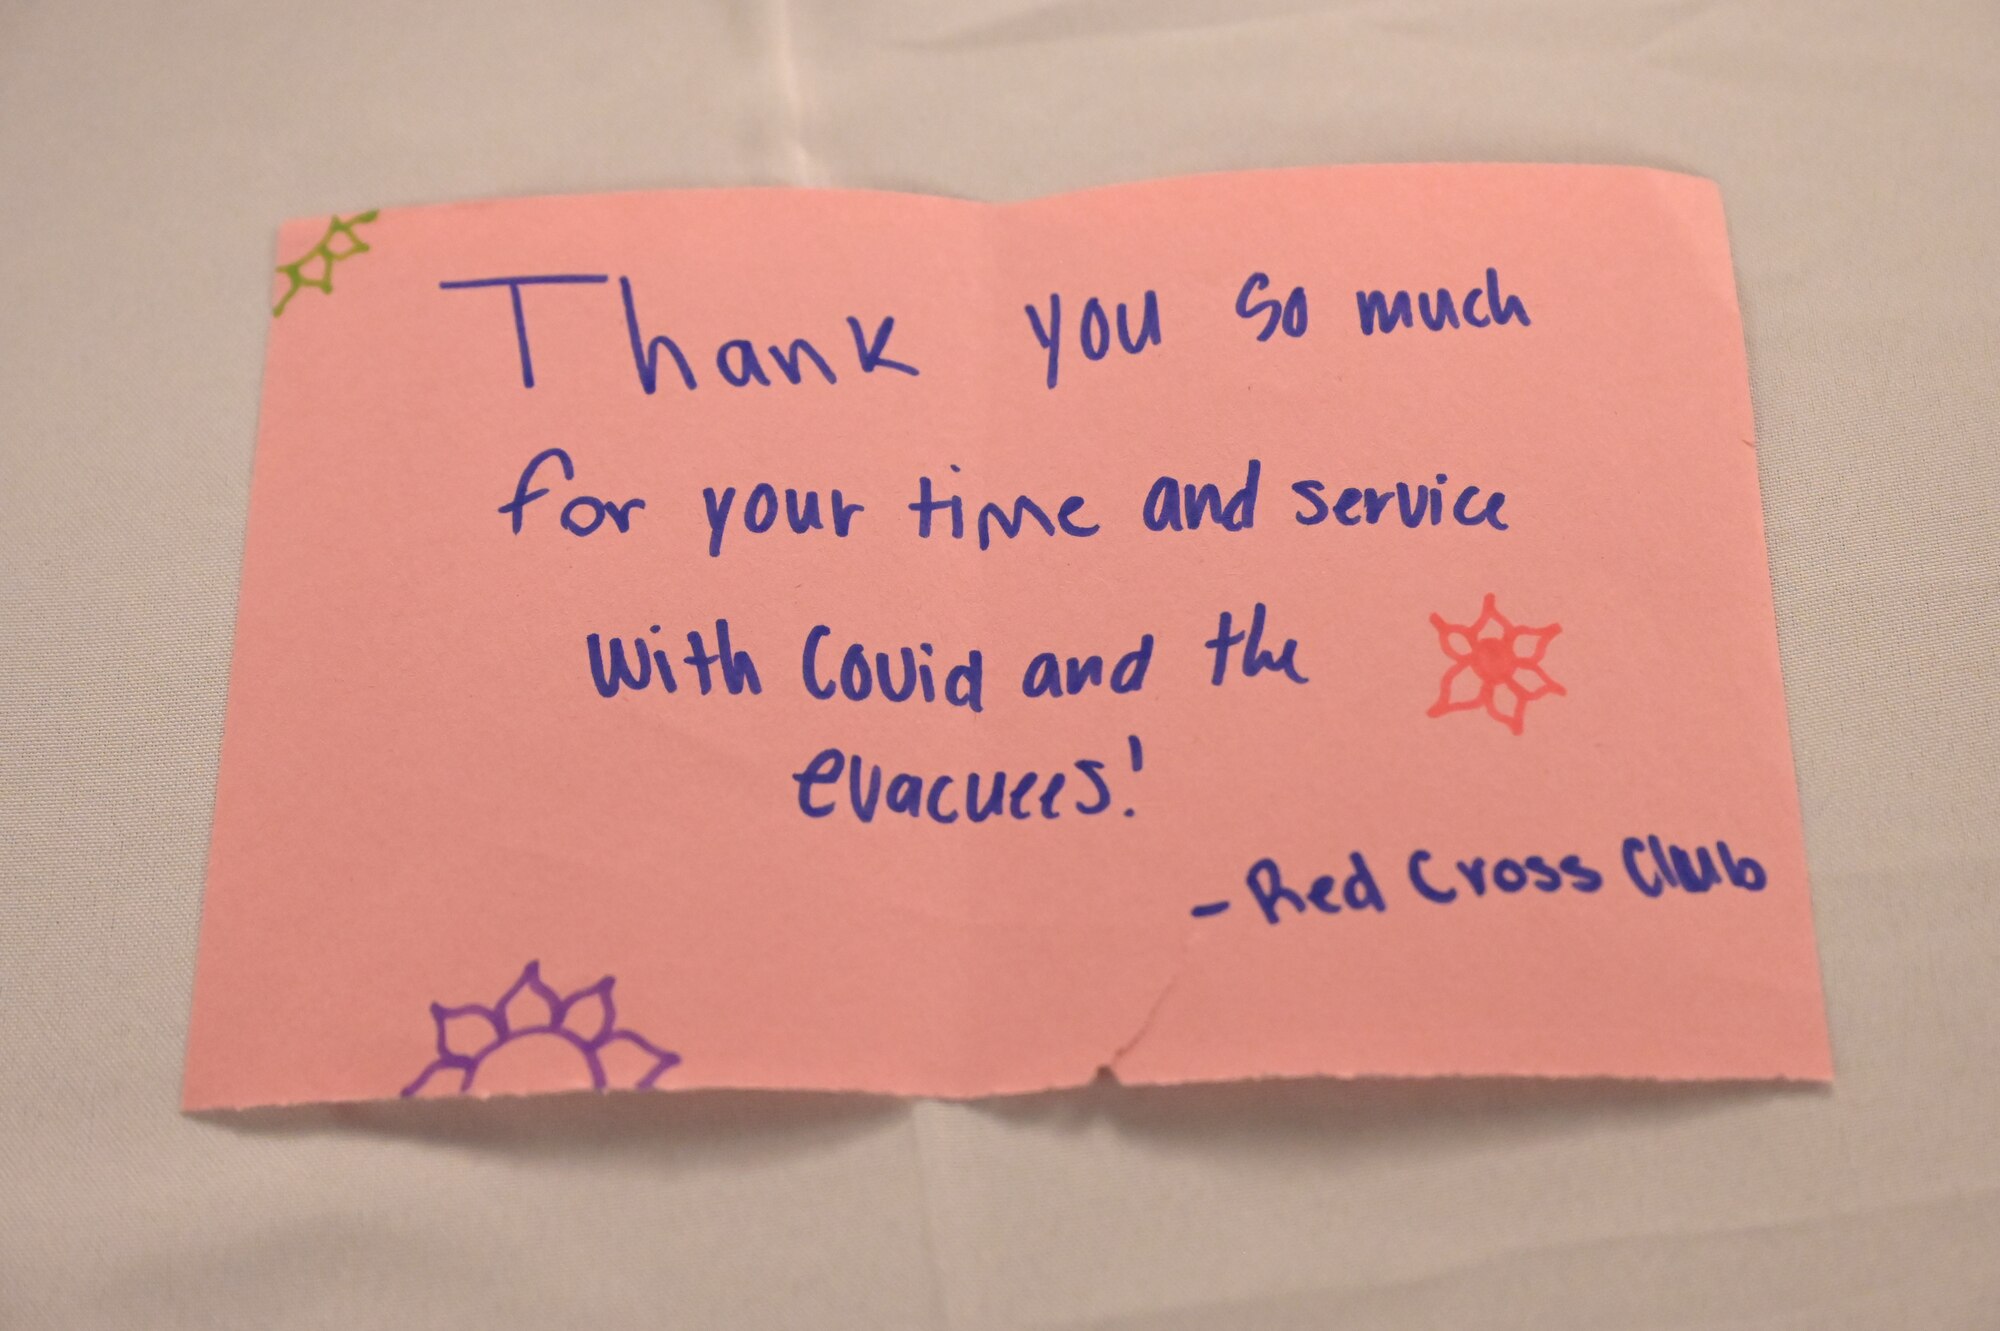 Thank you so much
for your time and service
with Covid and the
evacuees!
- Red Cross Club